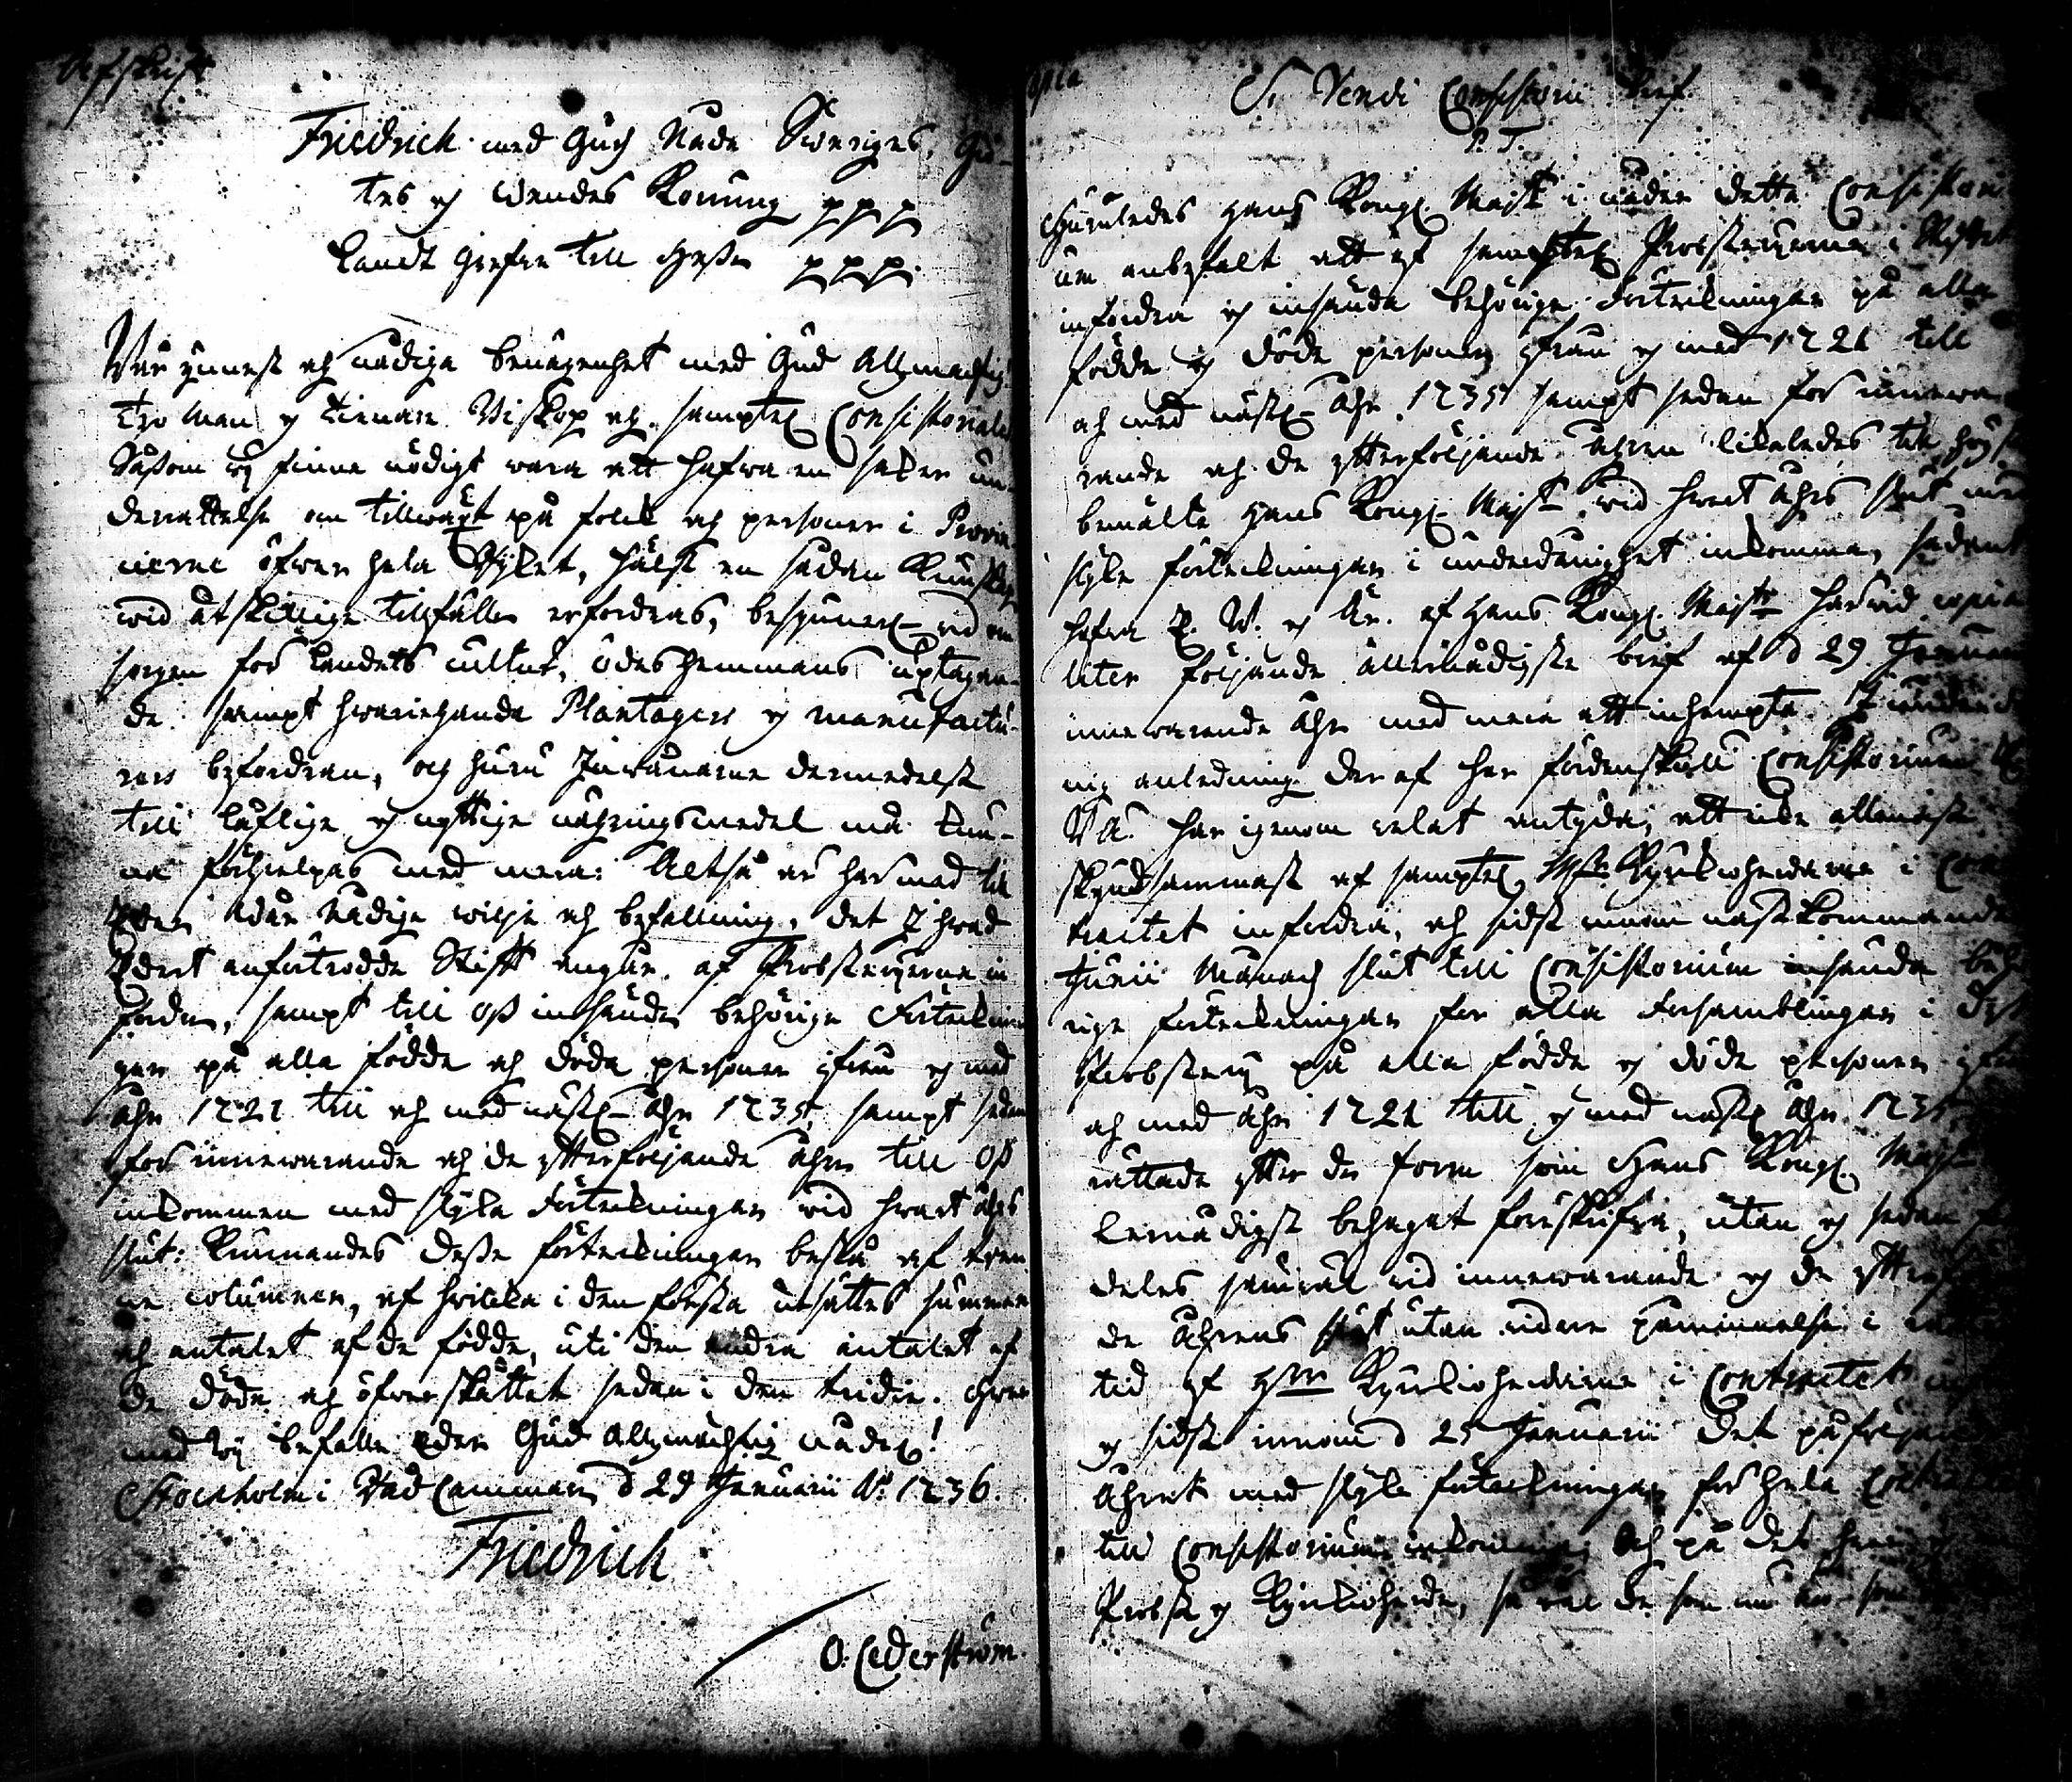 Afskrift
Friedrich med Gudz Nåde Sweriges, Giö-
tes och Wendes Konung ppp
Landt Grefwe till Hessen ppp.
Wår ynnest och nådiga benägenhet med Gud Allzmächtig
Tro Man och tienare Biskop och samptel. Consistoriales
Såsom wij finne nödigt wara att hafwa en säker un-
derrättelse om tillwäxt på folck och personer i Provin-
cierne öfwer hela Rijket, hälst en sådan Kunskap
wid åtskillige tillfällen erfordras, besynnerl. wid om
sorgen för Landets cultur, ödeshemmans uptagan-
de sampt hwariehanda Plantagers och manufactu-
rers befordran, och huru Inwånarne dermedelst
till låflige och nyttige näringsmedel må kun-
na förhielpas med mera: Altså är härmed till
Eder wår Nådige wilje och befallning, det I hwad
Edert anförtrodde Stift angår, af Probsterierne in
fordra, sampt till Oss insände behörige Förteknin
gar på alla födde och döda personer ifrån och med
åhr 1721 till och med näst. åhr 1735, sampt sedan
för innewarande och de efterföljande åhren till Oss
inkommen med slijka Förtekningar wid hwart åhrs
slut: Kunnandes desse förtekningar bestå af tren
ne columner, af hwilka i den första utsättes summan
och antalet af de födde, uti den andra antalet af
de döde och öfwerskåttet sedan i den tridie. Hwar
med Wij befalle Eder Gud Allzmächtig nådel.!
Stockholm i Råd Cammaren d 29 Januarii A:o 1736.
Friedrich
O: Cederström.
Copia
S. Vendi Consistorii bref.
P. T.
Huruledes Hans Kongl. Maj:t i nåder detta Consistori
um anbefalt att af samptel. Probsterierna i Stiftet
infordra och insända behörige Förtekningar på alla
födde och döde personer ifrån och med 1721 till
och med näst. åhr 1735 sampt sedan för innewa
rande och de efterföljande åhren likaledes till högst
bemälte Hans Kongl. Maj:t wid hwart åhrs slut med
slijke förtekningar i underdånighet inkomma, sådant
hafwa E. W. och Är. af Hans Kongl. Maj:ts härwid copia
liter följande allernådigste bref af d 29 Januarii
innewarande åhr med mera att inhempta. I underdå
nig anledning deraf har fördenskull Consistorium
WA. här igenom welat antyda, att icke allenast
skyndsammast af samptel. Kyrkioherdarne i Con
tractet infordra, och sidst innom nästkommande
Junii Månads slut till Consistorium insända behö
rige förtekningar för alla Församblingar i dess
Probsteri på alla födde och döde personer ifrån
och med åhr 1721 till och med näst. åhr 1735
rättade efter den form som Hans Kongl. Maj:t
lernådigst behagat föreskrifwa, utan och sedan
deles jemwäl wid innewarande och de efterföl
de åhrens slut utan widare påminnelse i
tid af H:rr Kyrkioherdarne i Contractet
och sidst innom d 25 Januarii det påföljan
åhret med slijka förtekningar för hela Contra
till Consistorium inkomma; Och på det hwar
Probst och Kyrkioherde, så wäl de som nu äro som